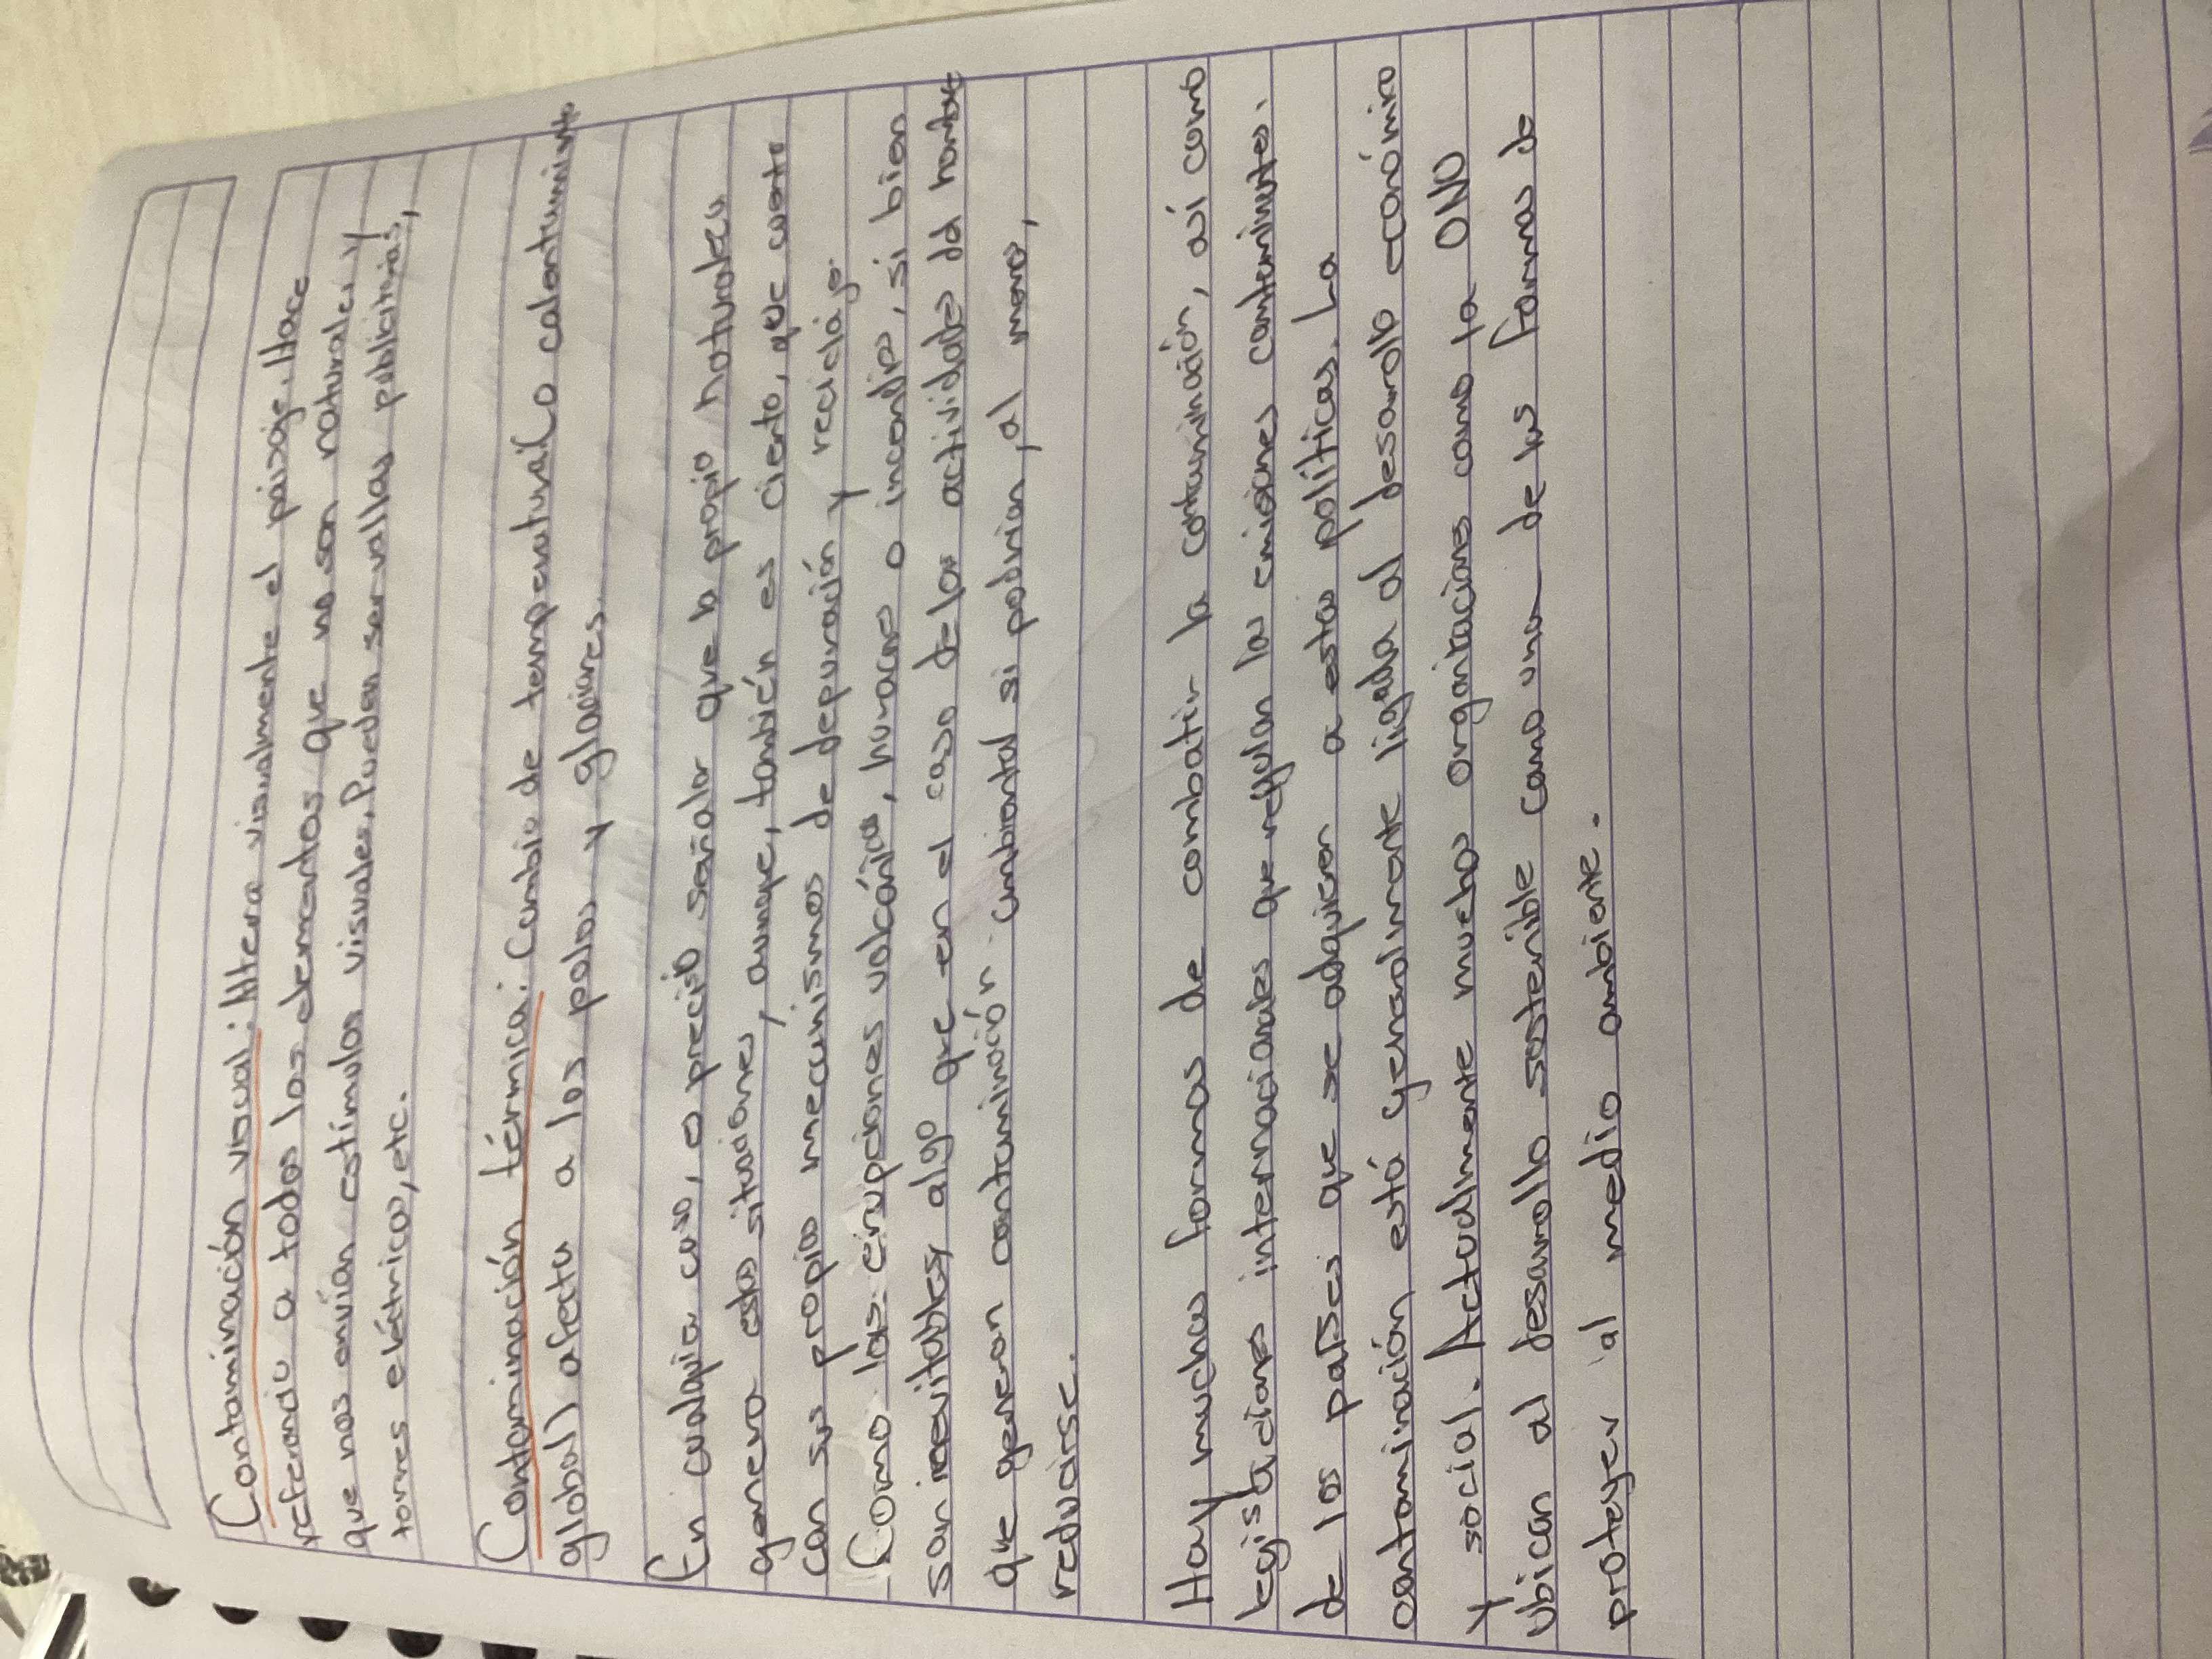 Contaminación visual: Altera visualmente el paisaje. Hace
referencia a todos los elementos que no son naturales y
que nos envían estímulos visuales. Pueden ser vallas publicitarias,
torres eléctricas, etc.
Contaminación térmica: Cambio de temperatura. Lo calentamiento
global) afecta a los polos y glaciares.
En cualquia caso, es preciso señalar que la propia naturaleza
genera estas situaciones, aunque, también es cierto, que cuenta
con sus propios mecanismos de depuración y reciclaje.
Como las erupciones volcánicas, huracanes o incendios, si bien
son inevitables, algo que en el caso de las actividades del hombre
que generan contaminación ambiental si podrian, al menos,
reducirse.
Hay muchas formas de combatir la contaminación, así como
legislaciones internacionales que regulan las emisiones contaminantes.
de los países que se adquieren a estas políticas. La
contaminación está generalmente ligada al desarrollo económico
y social. Actualmente muchas organizaciones como la ONU
ubican al desarrollo sostenible como una de las formas de
proteger al medio ambiente.